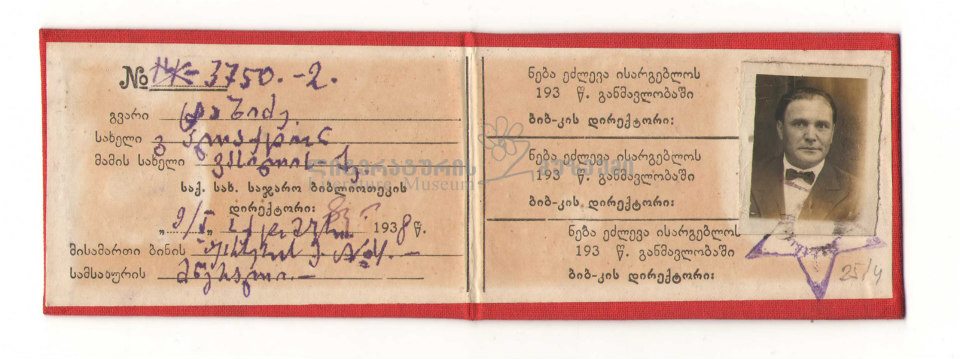 № НК-3750.-2.
გვარი ტაბიძე.
სახელი გალაკტიონ
მამის სახელი ვასილის ძე
საქ. სახ. საჯარო ბიბლიოთეკის
დირექტორი:
„9/I" 1938 წ.
მისამართი ბინის № 4.-
სამსახურის მწერალი.-
ნება ეძლევა ისარგებლოს
193 წ. განმავლობაში
ბიბ-კის დირექტორი:
ნება ეძლევა ისარგებლოს
193 წ. განმავლობაში
ბიბ-კის დირექტორი:
ნება ეძლევა ისარგებლოს
193 წ. განმავლობაში
ბიბ-კის დირექტორი:
25/4
ლიტერატურის მუზეუმი
Museum